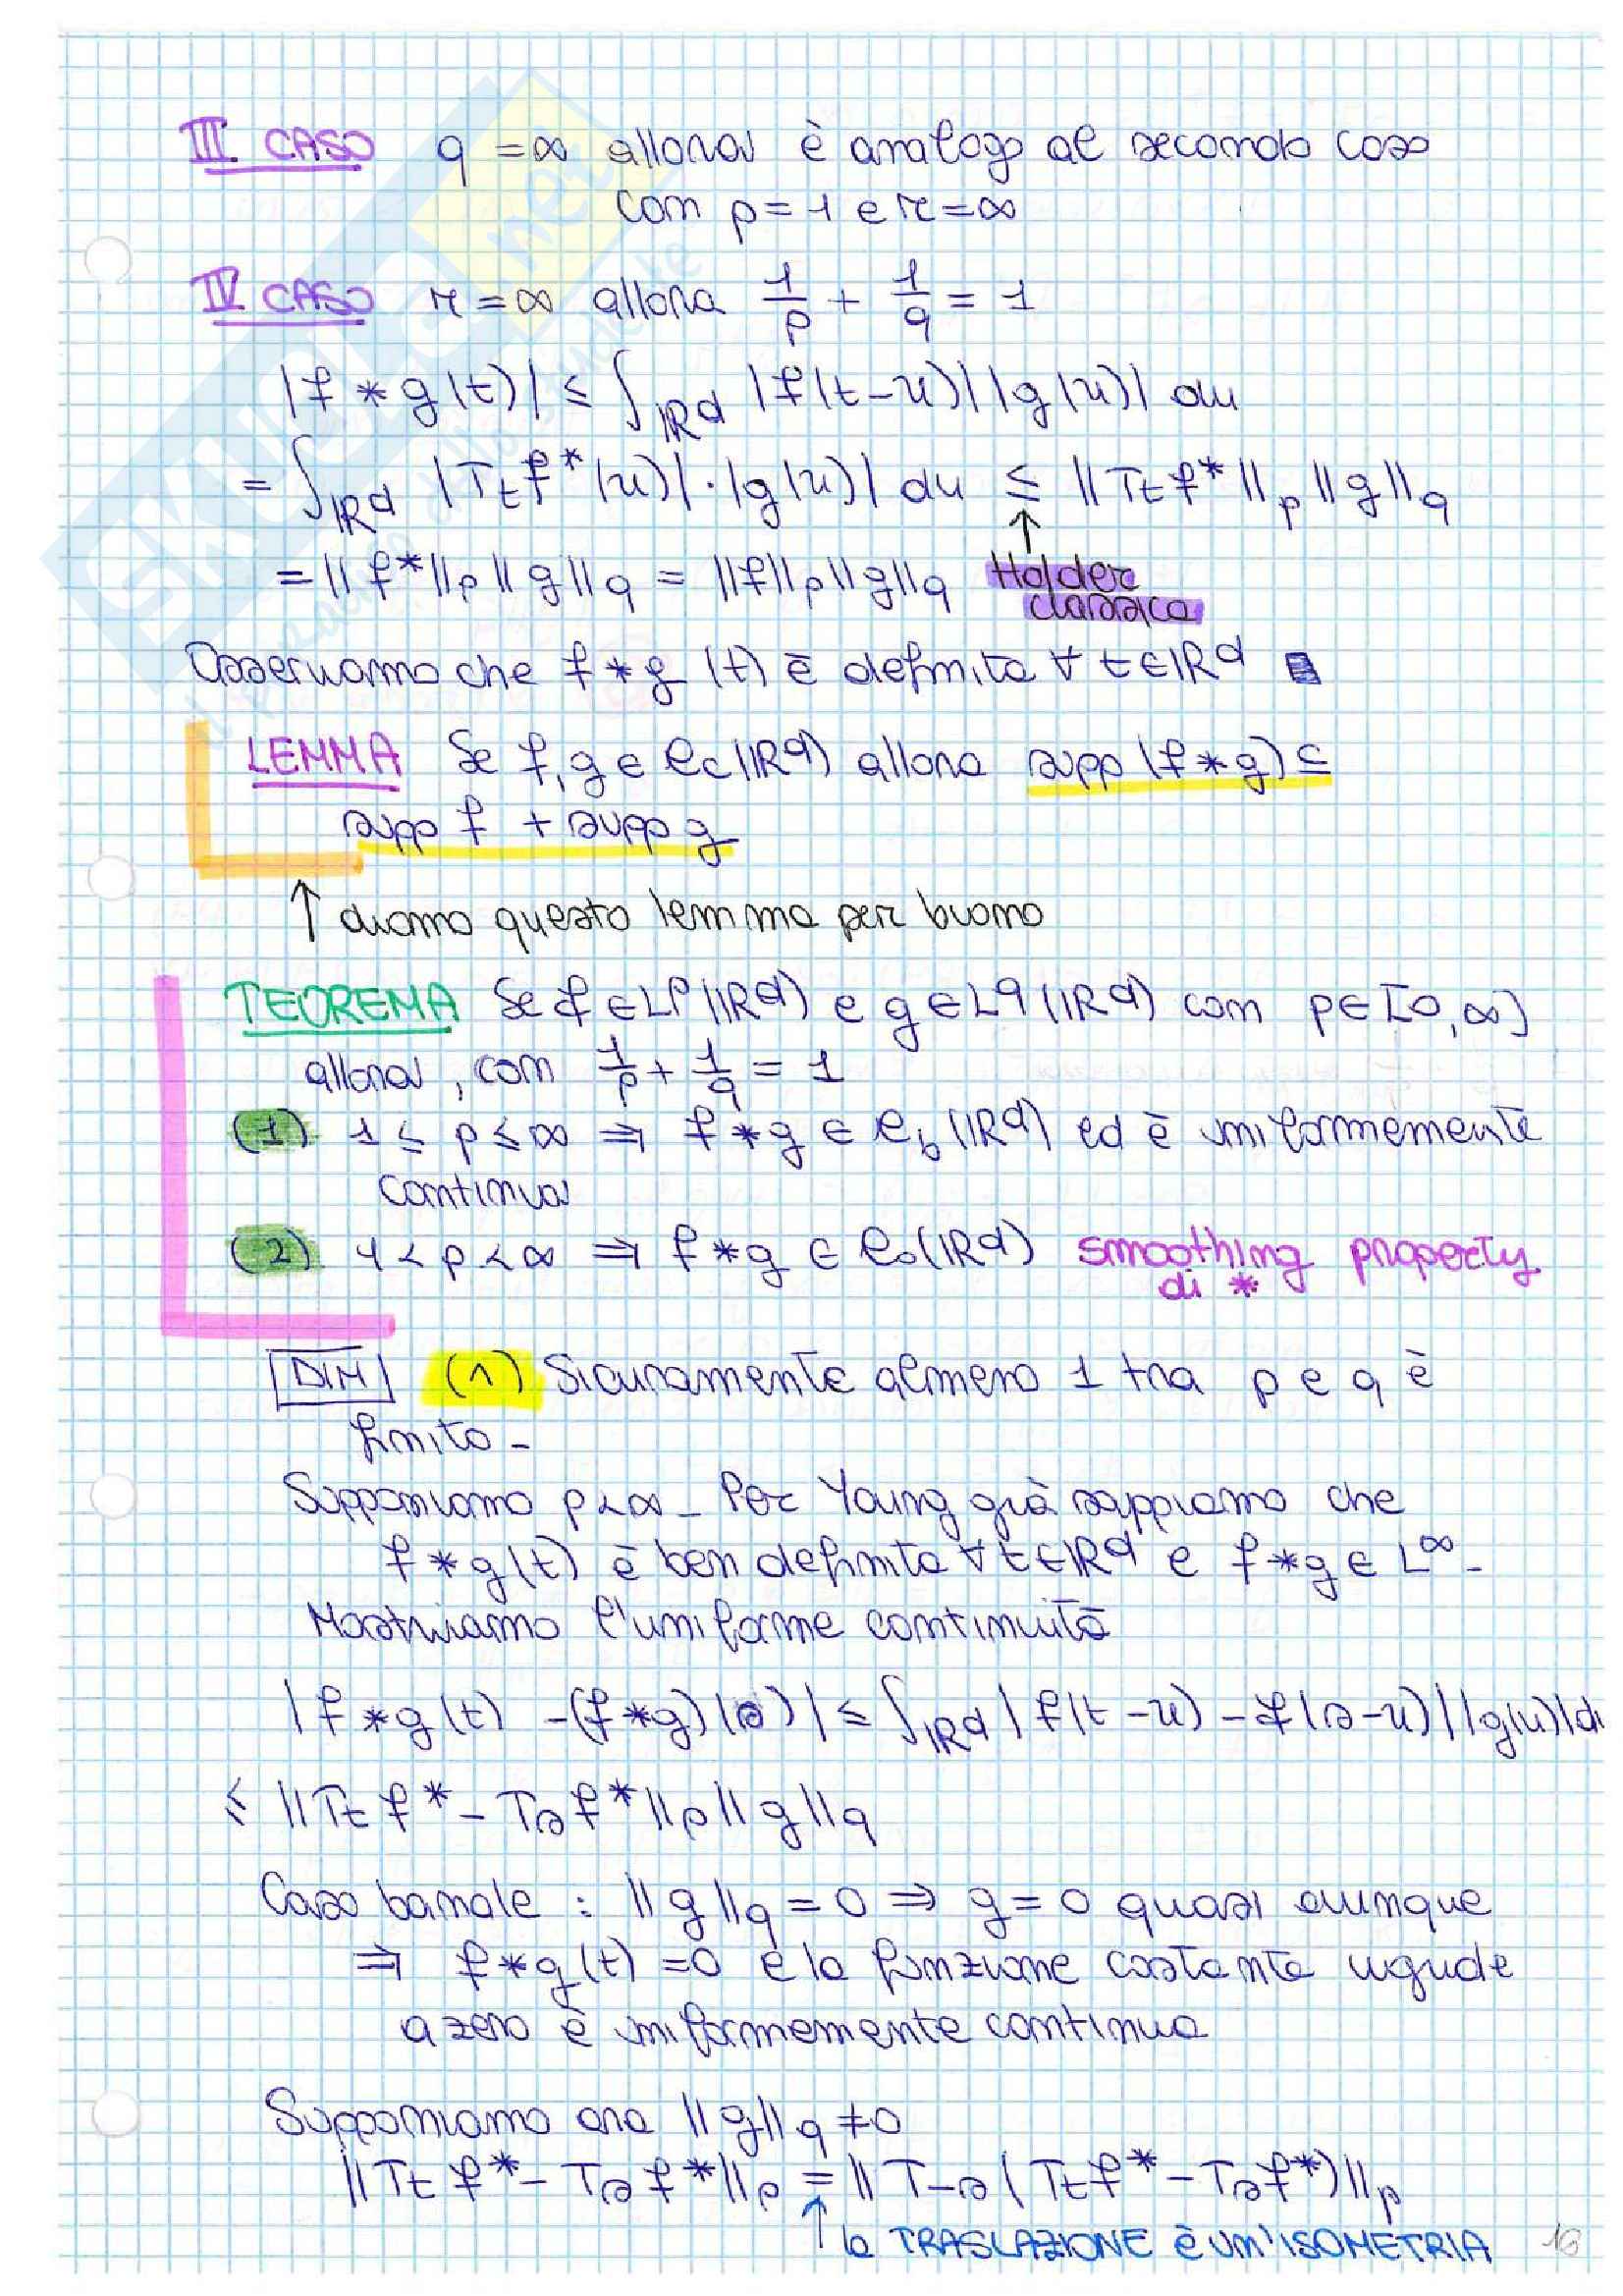 III CASO q = ∞ allora è analogo al secondo caso
con p = 1 e r = ∞
IV CASO r = ∞ allora 1/p + 1/q = 1
|f * g(t)| ≤ ∫_{ℝᵈ} |f(t-u)| |g(u)| du
= ∫_{ℝᵈ} |T_t f*(u)| · |g(u)| du ≤ ||T_t f*||_p ||g||_q
= ||f*||_p ||g||_q = ||f||_p ||g||_q ↑ Holder
classico
Osserviamo che f * g (t) è definita ∀ t ∈ ℝᵈ
LEMMA Se f, g ∈ C_c(ℝᵈ) allora supp (f * g) ⊆
supp f + supp g
↑ diamo questo lemma per buono
TEOREMA Se f ∈ Lᵖ(ℝᵈ) e g ∈ L^q(ℝᵈ) con p ∈ [0, ∞]
allora, con 1/p + 1/q = 1
(1) 1 ≤ p ≤ ∞ ⇒ f * g ∈ C_b(ℝᵈ) ed è uniformemente
continua
(2) 1 < p < ∞ ⇒ f * g ∈ C_0(ℝᵈ) smoothing property
di *
DIM (1) Sicuramente almeno 1 tra p e q è
finito -
Supponiamo p < ∞ - Per Young già sappiamo che
f * g(t) è ben definita ∀ t ∈ ℝᵈ e f * g ∈ L^∞ -
Mostriamo l'uniforme continuità
|f * g(t) - (f * g)(s)| ≤ ∫_{ℝᵈ} |f(t-u) - f(s-u)| |g(u)| du
≤ ||T_t f* - T_s f*||_p ||g||_q
Caso banale : ||g||_q = 0 ⇒ g = 0 quasi ovunque
⇒ f * g(t) = 0 e la funzione costante uguale
a zero è uniformemente continua
Supponiamo ora ||g||_q ≠ 0
||T_t f* - T_s f*||_p = ||T_{-s} (T_t f* - T_s f*)||_p
↑ la TRASLAZIONE È UN'ISOMETRIA 16